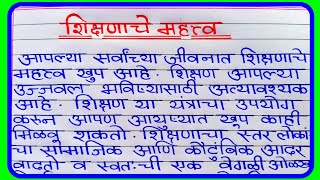 शिक्षणाचे महत्त्व
आपल्या सर्वांच्या जीवनात शिक्षणाचे
महत्व खुप आहे. शिक्षण आपल्या
उज्जवल भविष्यासाठी अत्यावश्यक
आहे. शिक्षण या यंत्राचा उपयोग
करुन आपण आयुष्यात खुप काही
मिळवू शकतो. शिक्षणाचा स्तर लोकां
चा सामाजिक आणि कौटुंबिक आदर
वाढतो व स्वतःची एक वेगळी ओळख